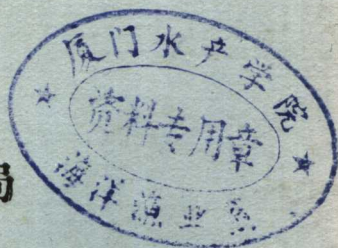 厦门水产学院
资料专用章
海洋渔业系
局